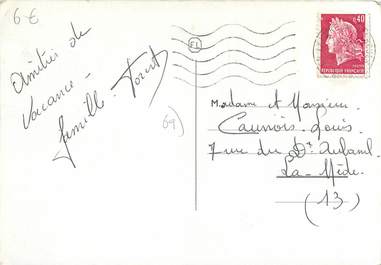 6 €
Amitiés de
vacance -
famille
0,40
REPUBLIQUE FRANÇAISE
69
Madame et Monsieur
Caunois Louis
7 rue du Dr
La Mède
(13)